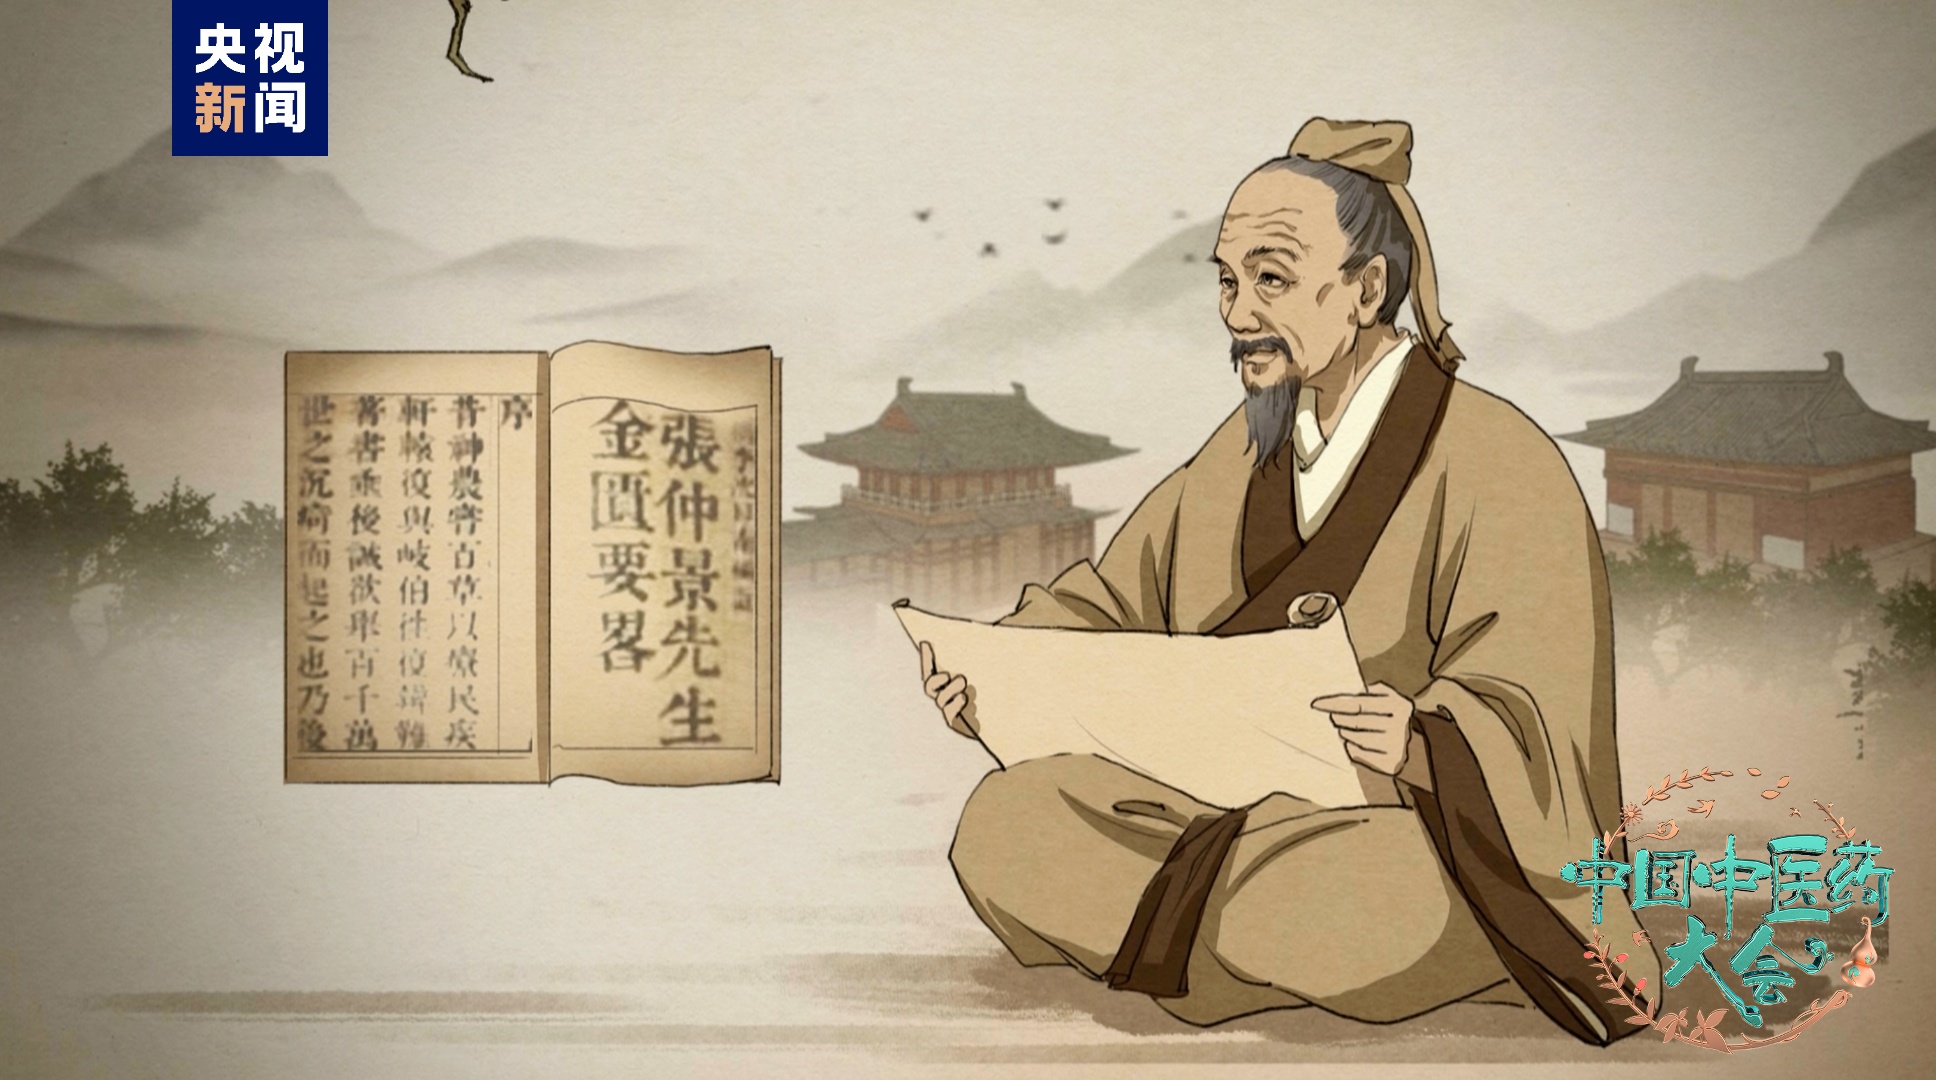 央视
新闻
張仲景先生
金匱要畧
序
昔神農嘗百草以療民疾
軒轅復與岐伯往復辯難
著書垂後誠欲舉百千萬
世之沉痾而起之也乃後
中国中医药
大会